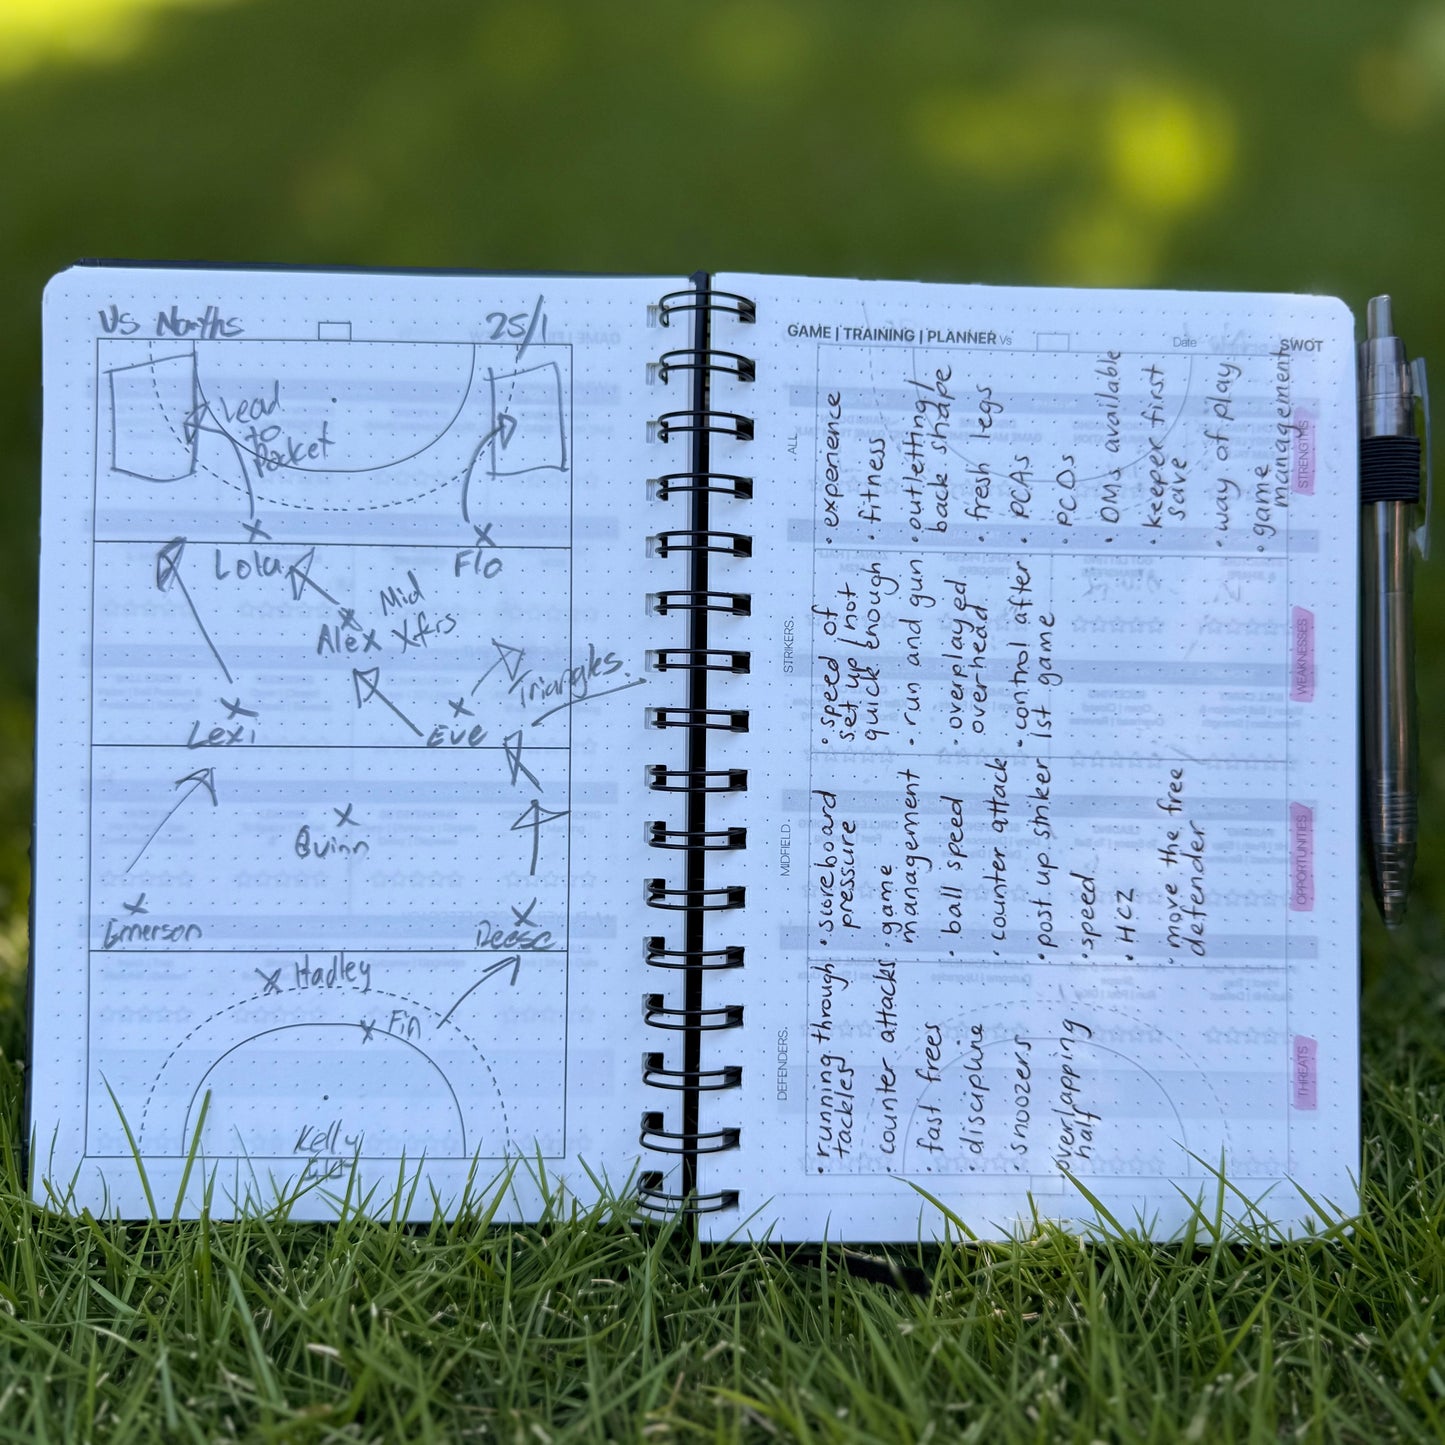 Vs Norths 25/1
Lead
to
Pocket
Lola
Flo
Mid
Alex Xfrs
Triangles.
Lexi
Eve
Quinn
Emerson
Reese
Hadley
Fin
Kelly
GAME | TRAINING | PLANNER Vs Date SWOT
ALL
STRIKERS.
MIDFIELD.
DEFENDERS.
STRENGTHS
• experience
• fitness
• outletting/
back shape
• fresh legs
• PCAs
• PCDs
• DMs available
• keeper first
save
• way of play
• game
management
WEAKNESSES
• speed of
set up / not
quick enough
• run and gun
• overplayed
overhead
• control after
1st game
OPPORTUNITIES
• scoreboard
pressure
• game
management
• ball speed
• counter attack
• post up striker
• speed
• HCZ
• move the free
defender
THREATS
• running through
tackles
• counter attacks
• fast frees
• discipline
• snoozers
• overlapping
half